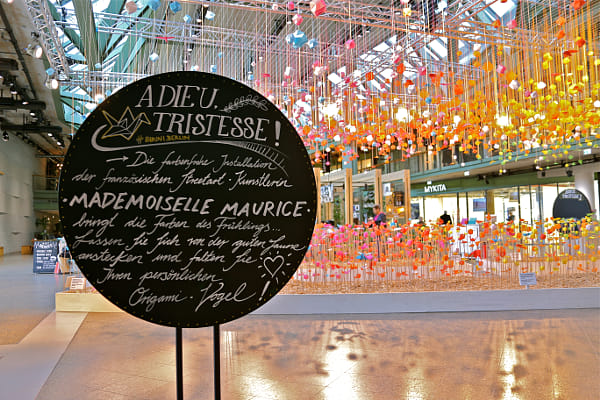 ADIEU,
TRISTESSE!
# BIKINI BERLIN
→ Die farbenfrohe Installation
der französischen Streetart-Künstlerin
·MADEMOISELLE MAURICE·
bringt die Farben des Frühlings...
Lassen Sie sich von der guten Laune
anstecken und falten Sie
Ihren persönlichen
Origami-Vogel!
MYKITA